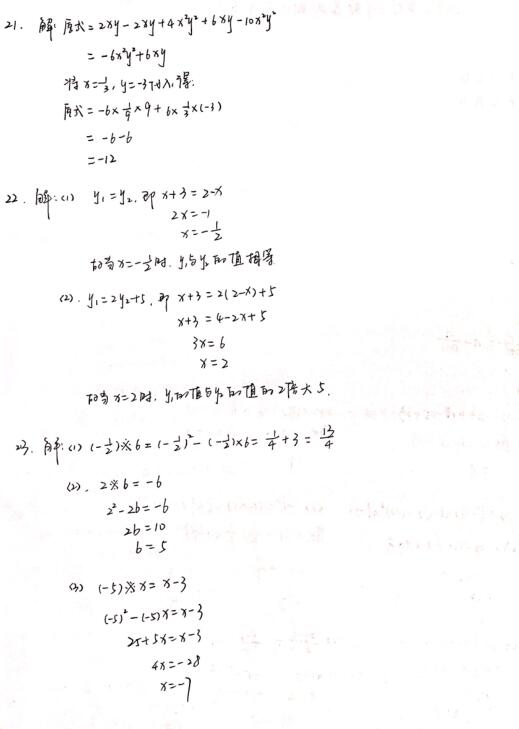 21. 解 原式 = 2xy - 2xy + 4x²y² + 6xy - 10x²y²
= -6x²y² + 6xy
将 x = 1/3, y = -3 代入得.
原式 = -6 × 1/9 × 9 + 6 × 1/3 × (-3)
= -6 - 6
= -12
22. 解: (1) y₁ = y₂, 即 x + 3 = 2 - x
2x = -1
x = -1/2
故当 x = -1/2 时, y₁与y₂的值相等
(2). y₁ = 2y₂ + 5, 即 x + 3 = 2(2 - x) + 5
x + 3 = 4 - 2x + 5
3x = 6
x = 2
故当 x = 2 时, y₁的值与y₂的值的2倍大5.
23. 解: (1) (-1/2)※6 = (-1/2)² - (-1/2)×6 = 1/4 + 3 = 13/4
(2). 2※b = -6
2² - 2b = -6
2b = 10
b = 5
(3) (-5)※x = x - 3
(-5)² - (-5)x = x - 3
25 + 5x = x - 3
4x = -28
x = -7